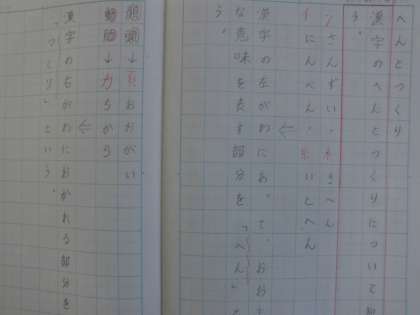 へんとつくり
漢字のへんとつくりについて
う。
シさんずい・木きへん
イにんべん・糸いとへん
漢字の左がわにあって、おお
な意味を表す部分を「へん」と
う。
頭→頁おおがい
動→力ちから
漢字の右がわにおかれる部分を
つくり」という。